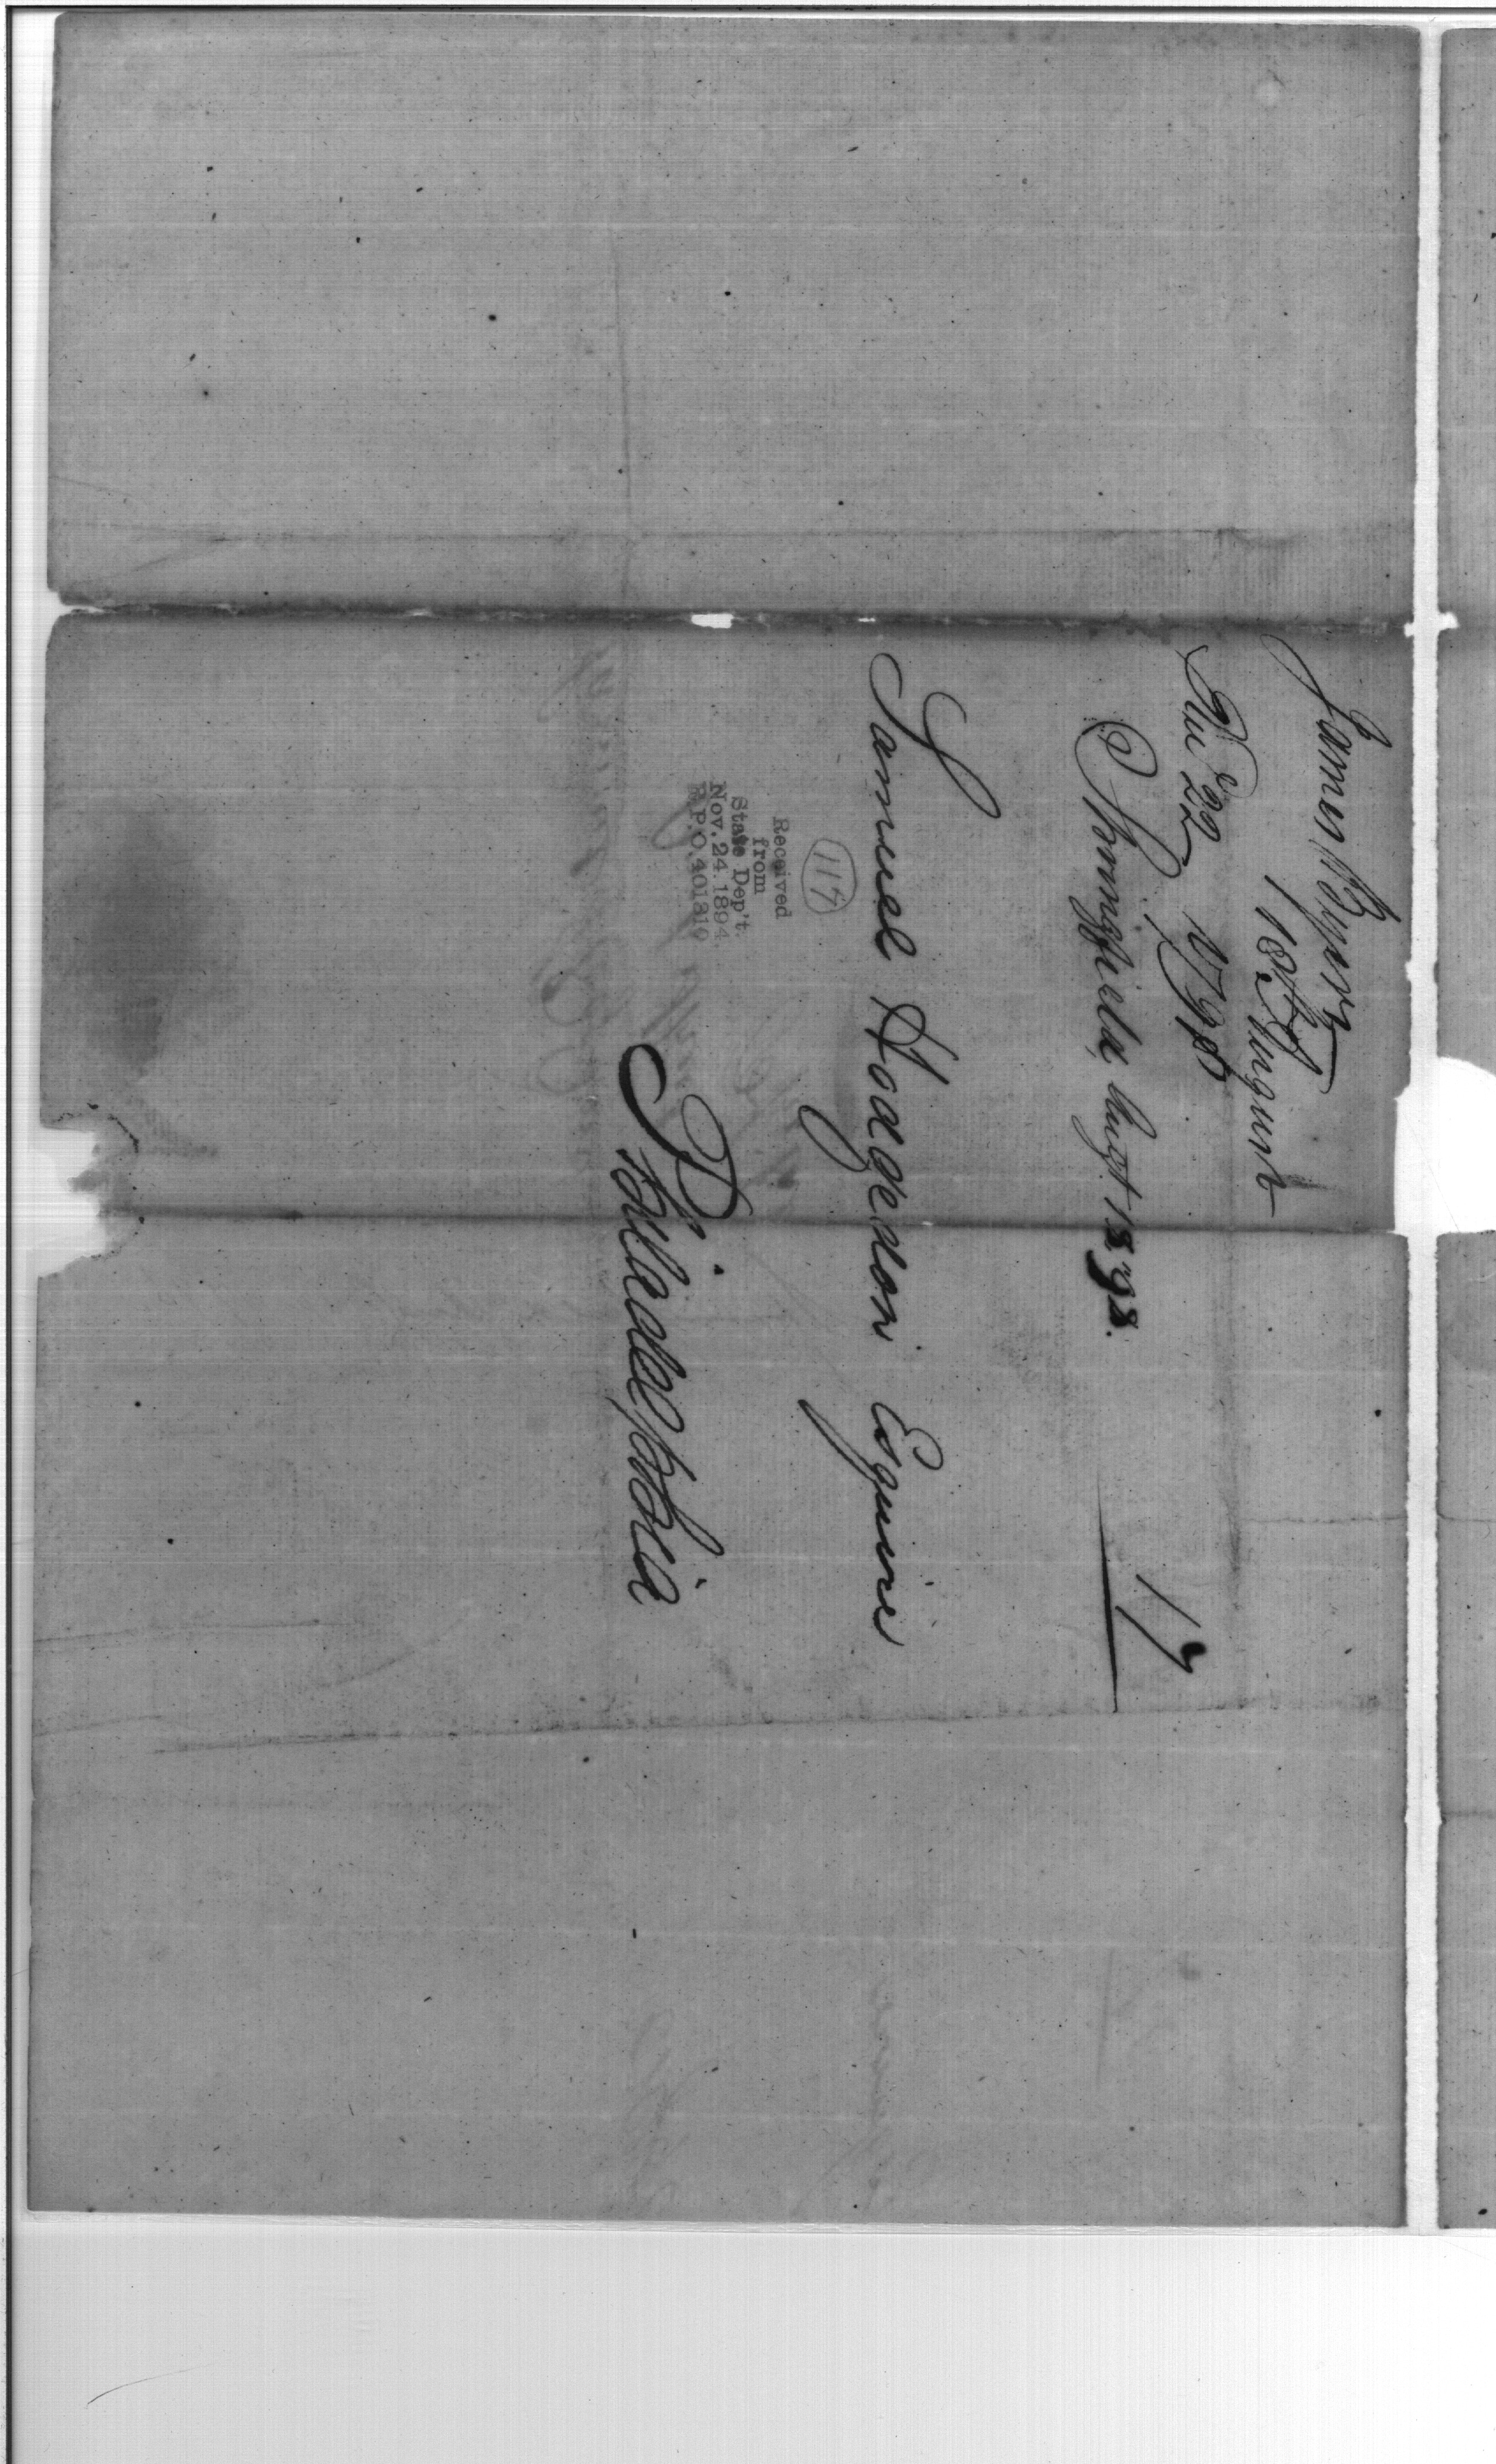 James Byers
18th August
Rec 22d 1798
Springfield Augt 18. 98.
17
Samuel Hodgedon Esquire
Philadelphia
117
Received
from
State Dep't.
Nov. 24. 1894.
R.P.O. 401810